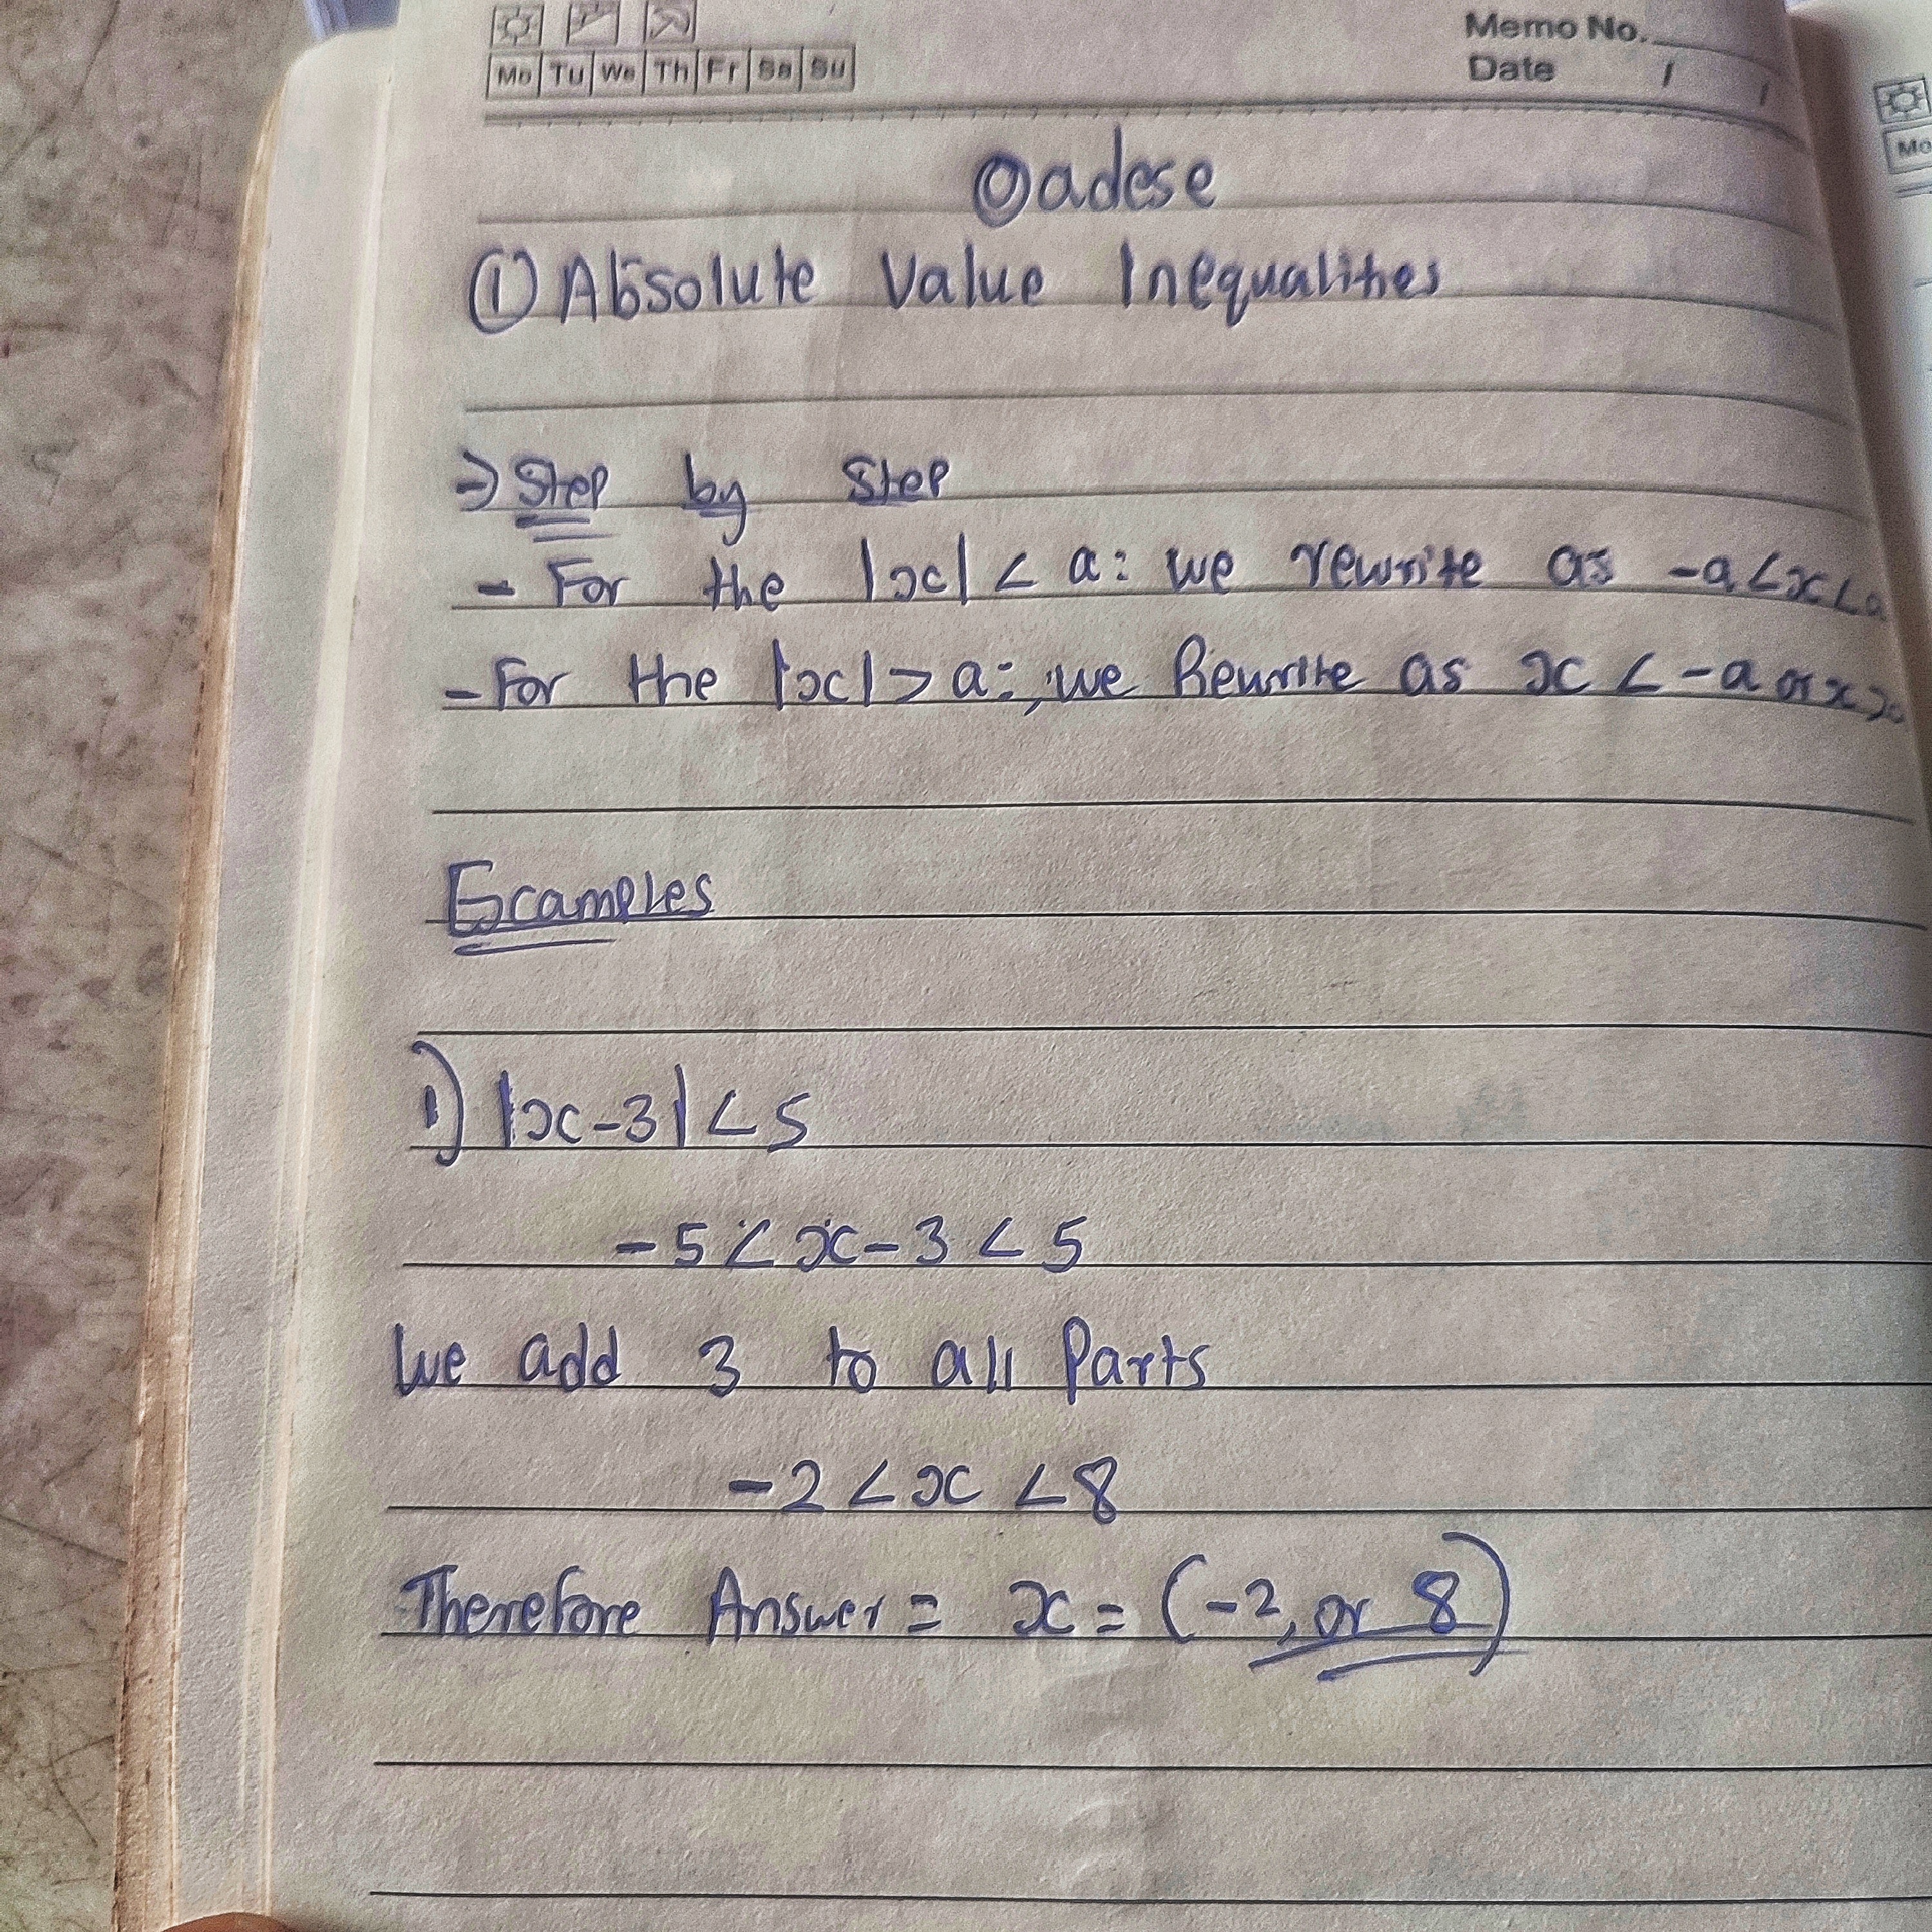 Memo No.
Mo Tu We Th Fr Sa Su
Date / /
Oadese
① Absolute Value Inequalities
→ Step by Step
- For the |x| < a: we rewrite as -a<x<a
- For the |x| > a:, we Rewrite as x < -a or x >
Examples
1) |x-3| < 5
-5 < x-3 < 5
We add 3 to all Parts
-2 < x < 8
Therefore Answer = x = (-2, or 8)
Mo